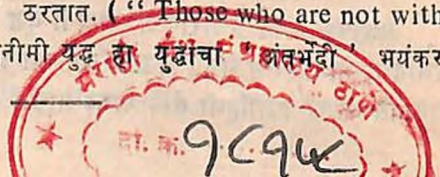 ठरतात. ( “ Those who are not with
तीमी युद्ध हा युद्धांचा ' अंतर्भेदी ' भयंकर
मराठी ग्रंथ संग्रहालय ठाणे
दा. क्र. ९८१५